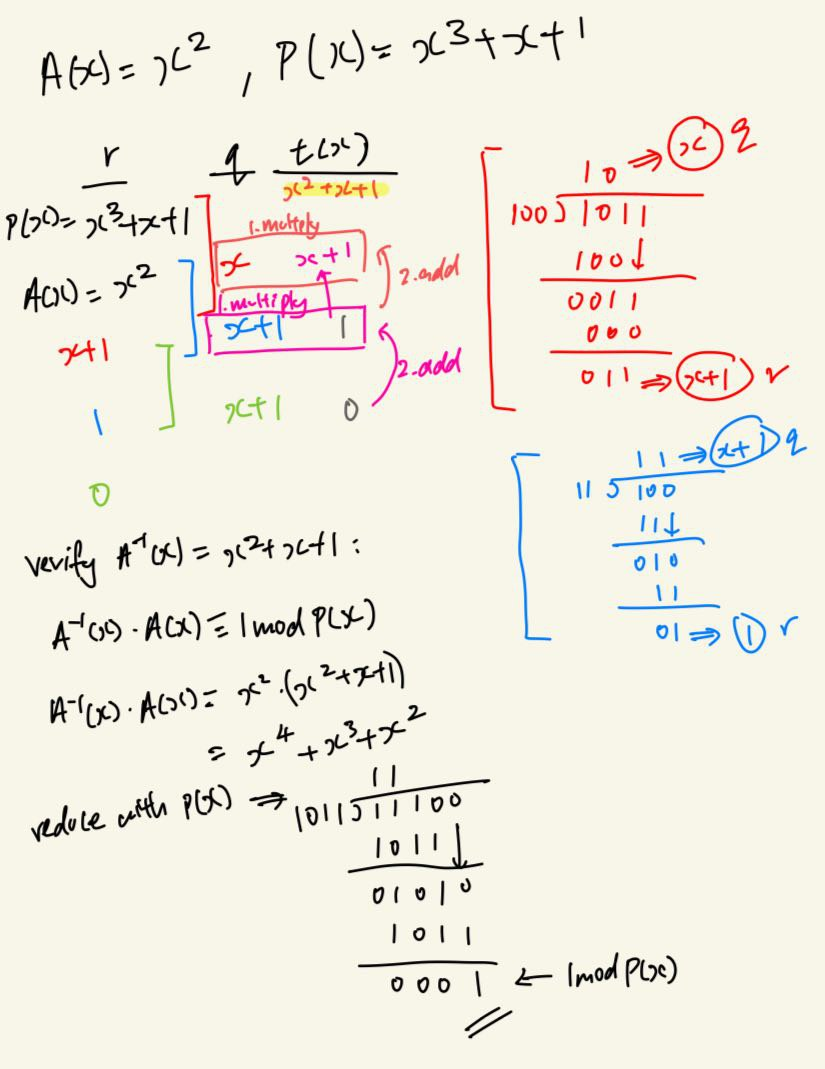 A(x) = x², P(x) = x³+x+1
r q t(x)
x²+x+1
P(x) = x³+x+1
1.multiply
x x+1
2.add
A(x) = x²
1.multiply
x+1 1
x+1
2.add
1 x+1 0
0
10 ⇒ x q
100 ) 1011
100↓
0011
000
011 ⇒ x+1 r
11 ⇒ x+1 q
11 ) 100
11↓
010
11
01 ⇒ 1 r
verify A⁻¹(x) = x²+x+1 :
A⁻¹(x) · A(x) ≡ 1 mod P(x)
A⁻¹(x) · A(x) = x² · (x²+x+1)
= x⁴+x³+x²
reduce with P(x) ⇒
11
1011 ) 11100
1011↓
01010
1011
0001 ← 1 mod P(x)